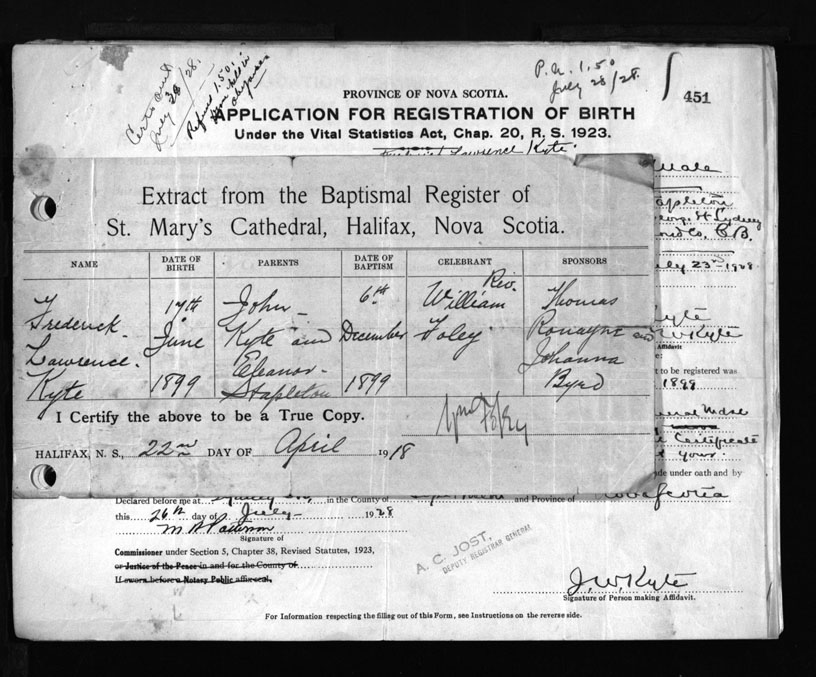 Certs and
July 28/28.
Refund 1.50,
P.N. 1.50
July 28/28.
451
PROVINCE OF NOVA SCOTIA.
APPLICATION FOR REGISTRATION OF BIRTH
Under the Vital Statistics Act, Chap. 20, R. S. 1923.
Lawrence Kyte
Extract from the Baptismal Register of
St. Mary's Cathedral, Halifax, Nova Scotia.
NAME DATE OF BIRTH PARENTS DATE OF BAPTISM CELEBRANT SPONSORS
Frederick 17th John 6th Rev. William Thomas
Lawrence June Kyte and December Foley Ronayne and
Kyte 1899 Eleanor Stapleton 1899 Johanna Byrd
I Certify the above to be a True Copy.
Wm Foley
HALIFAX, N. S., 22nd DAY OF April 1918
Male
apleton
Sydney
Co. C.B.
July 23rd 1928
yte
Kyte
Affidavit
t to be registered was
1899
Certificate
your
de under oath and by
Declared before me at in the County of and Province of Nova Scotia
this 26th day of July 1928
Signature of
Commissioner under Section 5, Chapter 38, Revised Statutes, 1923,
or Justice of the Peace in and for the County of
If sworn before a Notary Public affix seal.
A. C. JOST,
DEPUTY REGISTRAR GENERAL
J. W. Kyte
Signature of Person making Affidavit.
For Information respecting the filling out of this Form, see Instructions on the reverse side.